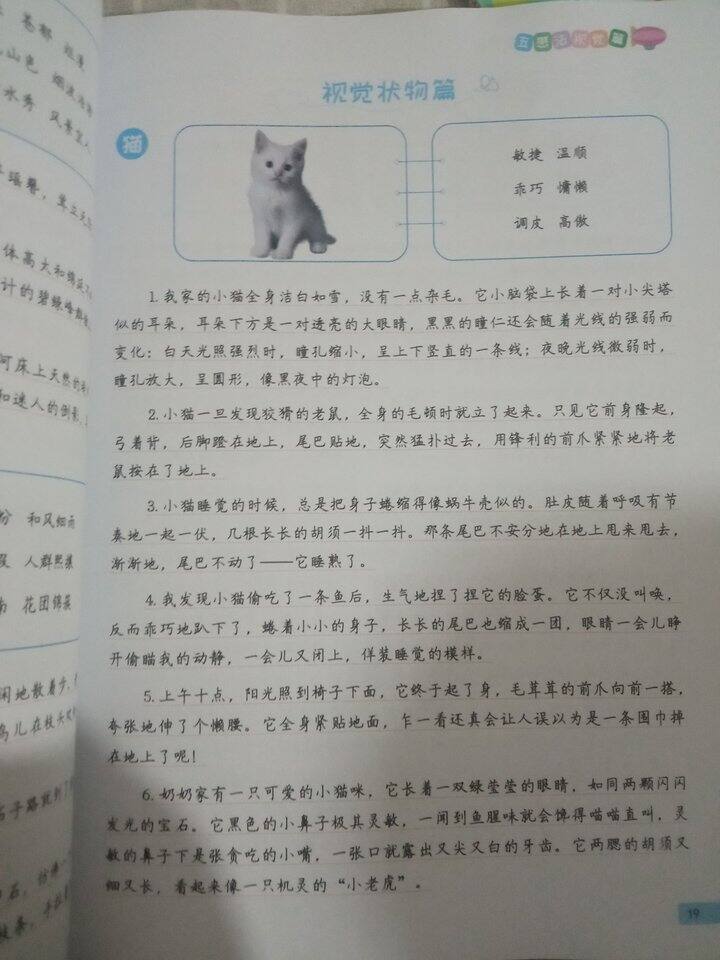 苍郁
山色
水秀
五感法
视觉状物篇
猫
敏捷 温顺
乖巧 慵懒
调皮 高傲
1.我家的小猫全身洁白如雪，没有一点杂毛。它小脑袋上长着一对小尖塔
似的耳朵，耳朵下方是一对透亮的大眼睛，黑黑的瞳仁还会随着光线的强弱而
变化：白天光照强烈时，瞳孔缩小，呈上下竖直的一条线；夜晚光线微弱时，
瞳孔放大，呈圆形，像黑夜中的灯泡。
2.小猫一旦发现狡猾的老鼠，全身的毛顿时就立了起来。只见它前身隆起，
弓着背，后脚蹬在地上，尾巴贴地，突然猛扑过去，用锋利的前爪紧紧地将老
鼠按在了地上。
3.小猫睡觉的时候，总是把身子蜷缩得像蜗牛壳似的。肚皮随着呼吸有节
奏地一起一伏，几根长长的胡须一抖一抖。那条尾巴不安分地在地上甩来甩去，
渐渐地，尾巴不动了——它睡熟了。
4.我发现小猫偷吃了一条鱼后，生气地捏了捏它的脸蛋。它不仅没叫唤，
反而乖巧地趴下了，蜷着小小的身子，长长的尾巴也缩成一团，眼睛一会儿睁
开偷瞄我的动静，一会儿又闭上，佯装睡觉的模样。
5.上午十点，阳光照到椅子下面，它终于起了身，毛茸茸的前爪向前一搭，
夸张地伸了个懒腰。它全身紧贴地面，乍一看还真会让人误以为是一条围巾掉
在地上了呢！
6.奶奶家有一只可爱的小猫咪，它长着一双绿莹莹的眼睛，如同两颗闪闪
发光的宝石。它黑色的小鼻子极其灵敏，一闻到鱼腥味就会馋得喵喵直叫，灵
敏的鼻子下是张贪吃的小嘴，一张口就露出又尖又白的牙齿。它两腮的胡须又
细又长，看起来像一只机灵的“小老虎”。
19
体高大和
计的碧绿
河床上天然的
和迷人的倒影
和风细雨
人群熙攘
花团锦簇
闲地散着步
鸟儿在枝头
石子路